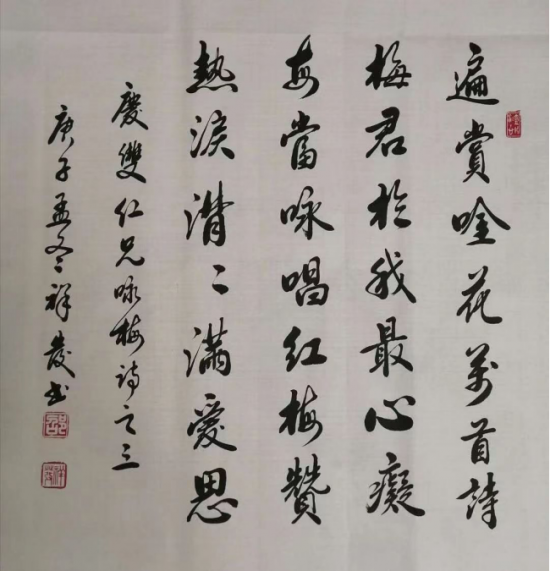 遍賞唫花萬首詩
梅君於我最心癡
每當咏唱紅梅贊
熱淚潸〻滿愛思
慶雙仁兄咏梅詩之三
庚子孟冬祥發书